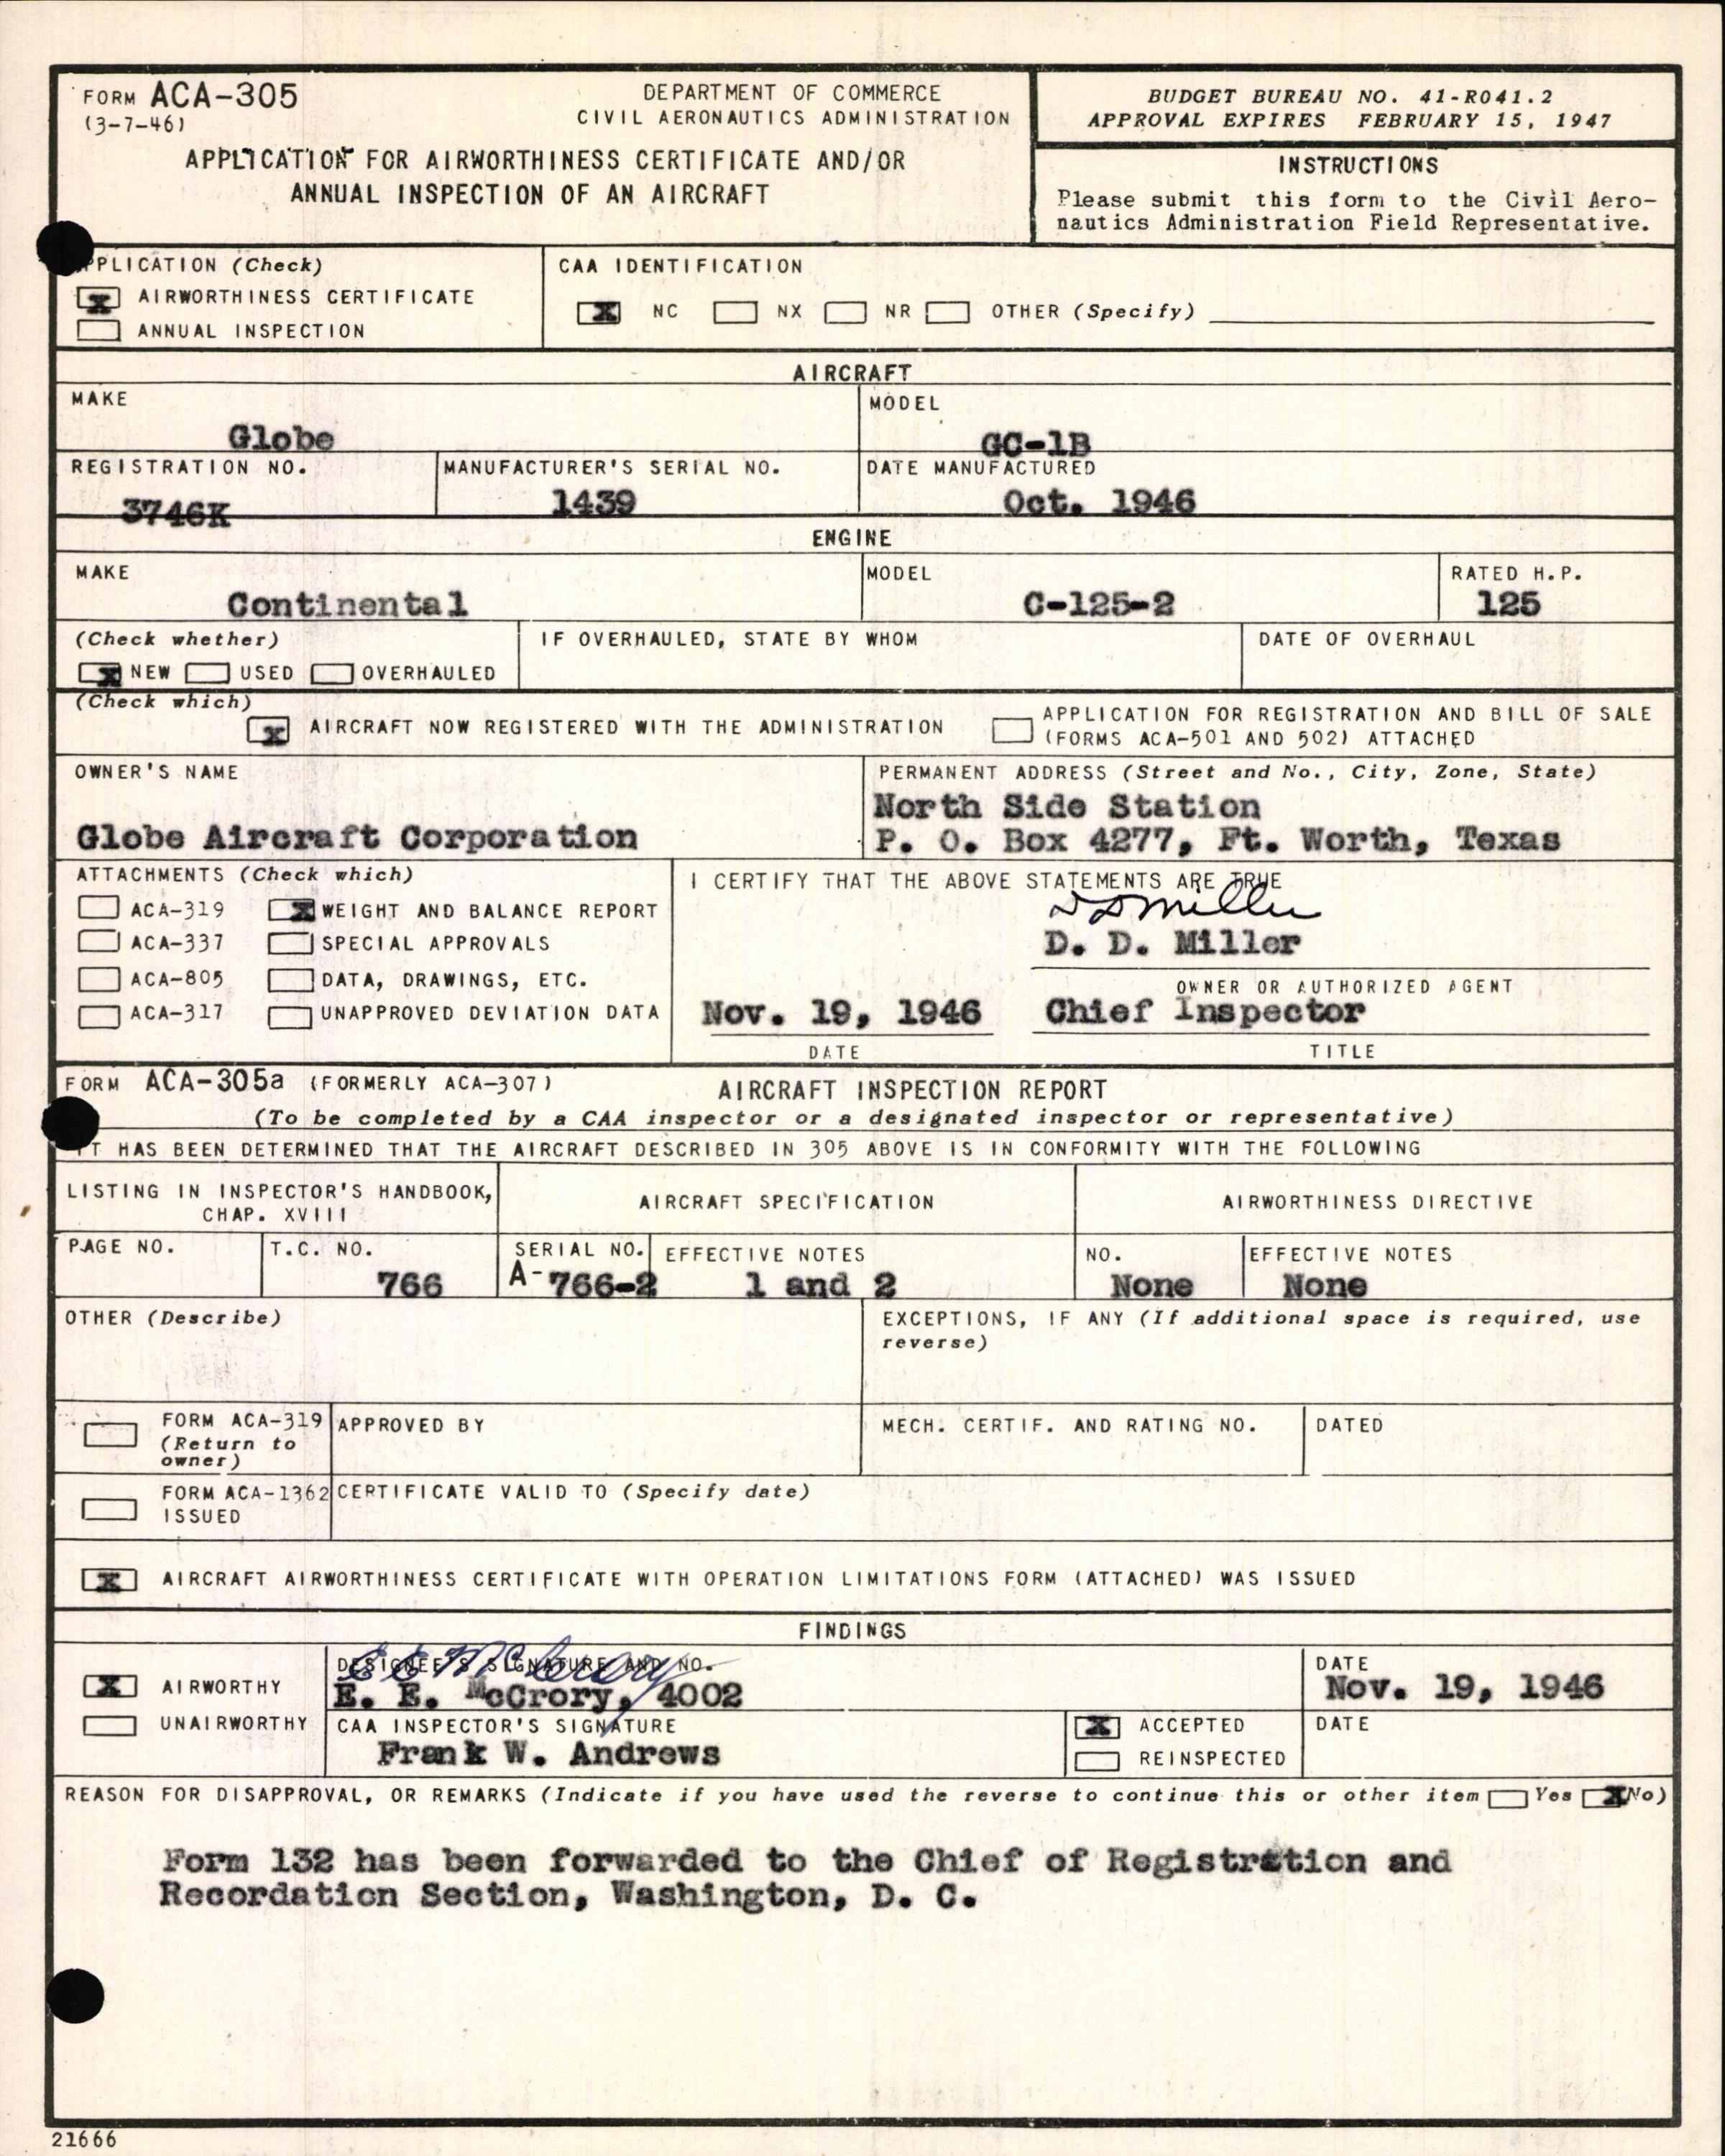 FORM ACA-305
(3-7-46)
DEPARTMENT OF COMMERCE
CIVIL AERONAUTICS ADMINISTRATION
APPLICATION FOR AIRWORTHINESS CERTIFICATE AND/OR
ANNUAL INSPECTION OF AN AIRCRAFT
BUDGET BUREAU NO. 41-R041.2
APPROVAL EXPIRES FEBRUARY 15, 1947
INSTRUCTIONS
Please submit this form to the Civil Aero-
nautics Administration Field Representative.
PPLICATION (Check)
X AIRWORTHINESS CERTIFICATE
ANNUAL INSPECTION
CAA IDENTIFICATION
X NC NX NR OTHER (Specify)
AIRCRAFT
MAKE
Globe
MODEL
GC-1B
REGISTRATION NO.
3746K
MANUFACTURER'S SERIAL NO.
1439
DATE MANUFACTURED
Oct. 1946
ENGINE
MAKE
Continental
MODEL
C-125-2
RATED H.P.
125
(Check whether)
X NEW USED OVERHAULED
IF OVERHAULED, STATE BY WHOM
DATE OF OVERHAUL
(Check which)
X AIRCRAFT NOW REGISTERED WITH THE ADMINISTRATION
APPLICATION FOR REGISTRATION AND BILL OF SALE
(FORMS ACA-501 AND 502) ATTACHED
OWNER'S NAME
Globe Aircraft Corporation
PERMANENT ADDRESS (Street and No., City, Zone, State)
North Side Station
P. O. Box 4277, Ft. Worth, Texas
ATTACHMENTS (Check which)
ACA-319 X WEIGHT AND BALANCE REPORT
ACA-337 SPECIAL APPROVALS
ACA-805 DATA, DRAWINGS, ETC.
ACA-317 UNAPPROVED DEVIATION DATA
I CERTIFY THAT THE ABOVE STATEMENTS ARE TRUE
D D Miller
D. D. Miller
OWNER OR AUTHORIZED AGENT
Nov. 19, 1946 Chief Inspector
DATE TITLE
FORM ACA-305a (FORMERLY ACA-307) AIRCRAFT INSPECTION REPORT
(To be completed by a CAA inspector or a designated inspector or representative)
IT HAS BEEN DETERMINED THAT THE AIRCRAFT DESCRIBED IN 305 ABOVE IS IN CONFORMITY WITH THE FOLLOWING
LISTING IN INSPECTOR'S HANDBOOK,
CHAP. XVIII
AIRCRAFT SPECIFICATION
AIRWORTHINESS DIRECTIVE
PAGE NO.
T.C. NO.
766
SERIAL NO.
A-766-2
EFFECTIVE NOTES
1 and 2
NO.
None
EFFECTIVE NOTES
None
OTHER (Describe)
EXCEPTIONS, IF ANY (If additional space is required, use
reverse)
FORM ACA-319
(Return to
owner)
APPROVED BY
MECH. CERTIF. AND RATING NO.
DATED
FORM ACA-1362
ISSUED
CERTIFICATE VALID TO (Specify date)
X AIRCRAFT AIRWORTHINESS CERTIFICATE WITH OPERATION LIMITATIONS FORM (ATTACHED) WAS ISSUED
FINDINGS
X AIRWORTHY
UNAIRWORTHY
DESIGNEE'S SIGNATURE AND NO.
E E McCrory
E. E. McCrory, 4002
DATE
Nov. 19, 1946
CAA INSPECTOR'S SIGNATURE
Frank W. Andrews
X ACCEPTED
REINSPECTED
DATE
REASON FOR DISAPPROVAL, OR REMARKS (Indicate if you have used the reverse to continue this or other item Yes X No)
Form 132 has been forwarded to the Chief of Registration and
Recordation Section, Washington, D. C.
21666